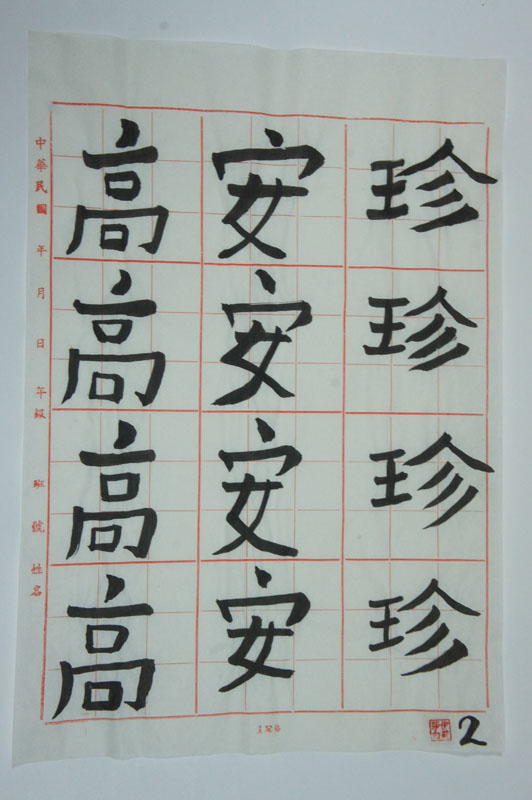 珍珍珍珍
安安安安
高高高高
中華民國 年 月 日 年級 班 號 姓名
2